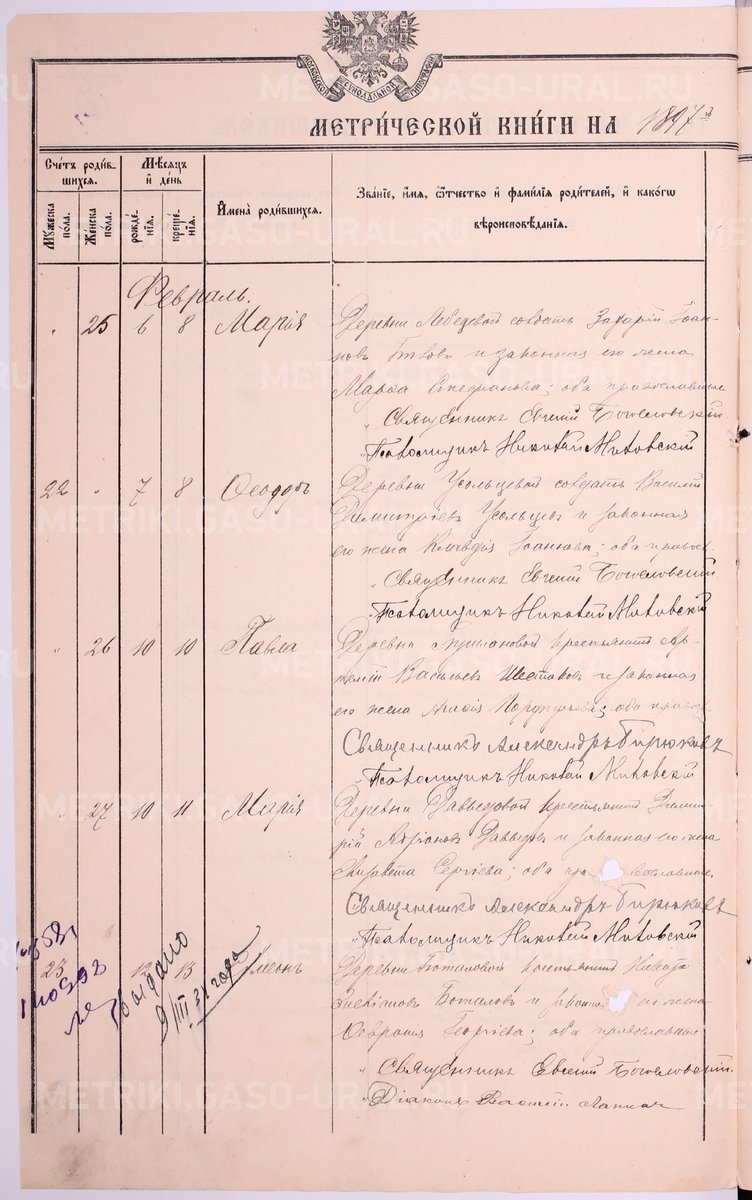 МЕТРИ́ЧЕСКОЙ КНИ́ГИ НА 1897 й
Счетъ роди́вшихся.
Мѣсяцъ и день
Мужеска пола.
Женска пола.
рождѐнія.
крещѐнія.
И҆мена̀ роди́вшихся.
Зва́ніе, и҆́мя, ѻ҆́тчество и҆ фами́лія роди́телей, и҆ како́гѡ
вѣроисповѣ́данія.
Февраль.
" 25 6 8 Марія
Деревни Лебедевой солдатъ Захарій Іоан-
новъ и законная его жена
Марѳа Стефанова; оба православные
"Священникъ Евгеній Богословскій
"Псаломщикъ Николай Миловскій
22 " 7 8 Ѳеодоръ
Деревни Усольцевой солдатъ Василій
Димитріевъ Усольцевъ и законная
его жена Клавдія Іоаннова; оба правос.
"Священникъ Евгеній Богословскій.
"Псаломщикъ Николай Миловскій
" 26 10 10 Павла
Деревни крестьянинъ Ар-
темій Васильевъ Шестаковъ и законная
его жена Порфирьева; оба правос.
Священникъ Александръ Бирюковъ
"Псаломщикъ Николай Миловскій
" 27 10 11 Марія
Деревни Давыдовой крестьянинъ Димит-
рій Давыдовъ и законная его жена
Елизавета Сергіева; оба православные
Священникъ Александръ Бирюковъ
"Псаломщикъ Николай Миловскій
23 12 13 Симеонъ
Деревни Боталовой крестьянинъ
Боталовъ и законная его жена
Февронія Георгіева; оба православные
"Священникъ Евгеній Богословскій.
"Діаконъ Василій
Выдано
9/III 31 года